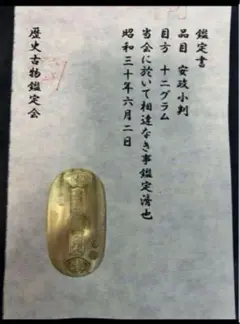 鑑定書
品目 安政小判
目方 十二グラム
当会に於いて相違なき事鑑定済也
昭和三十年六月二日
歴史古物鑑定会